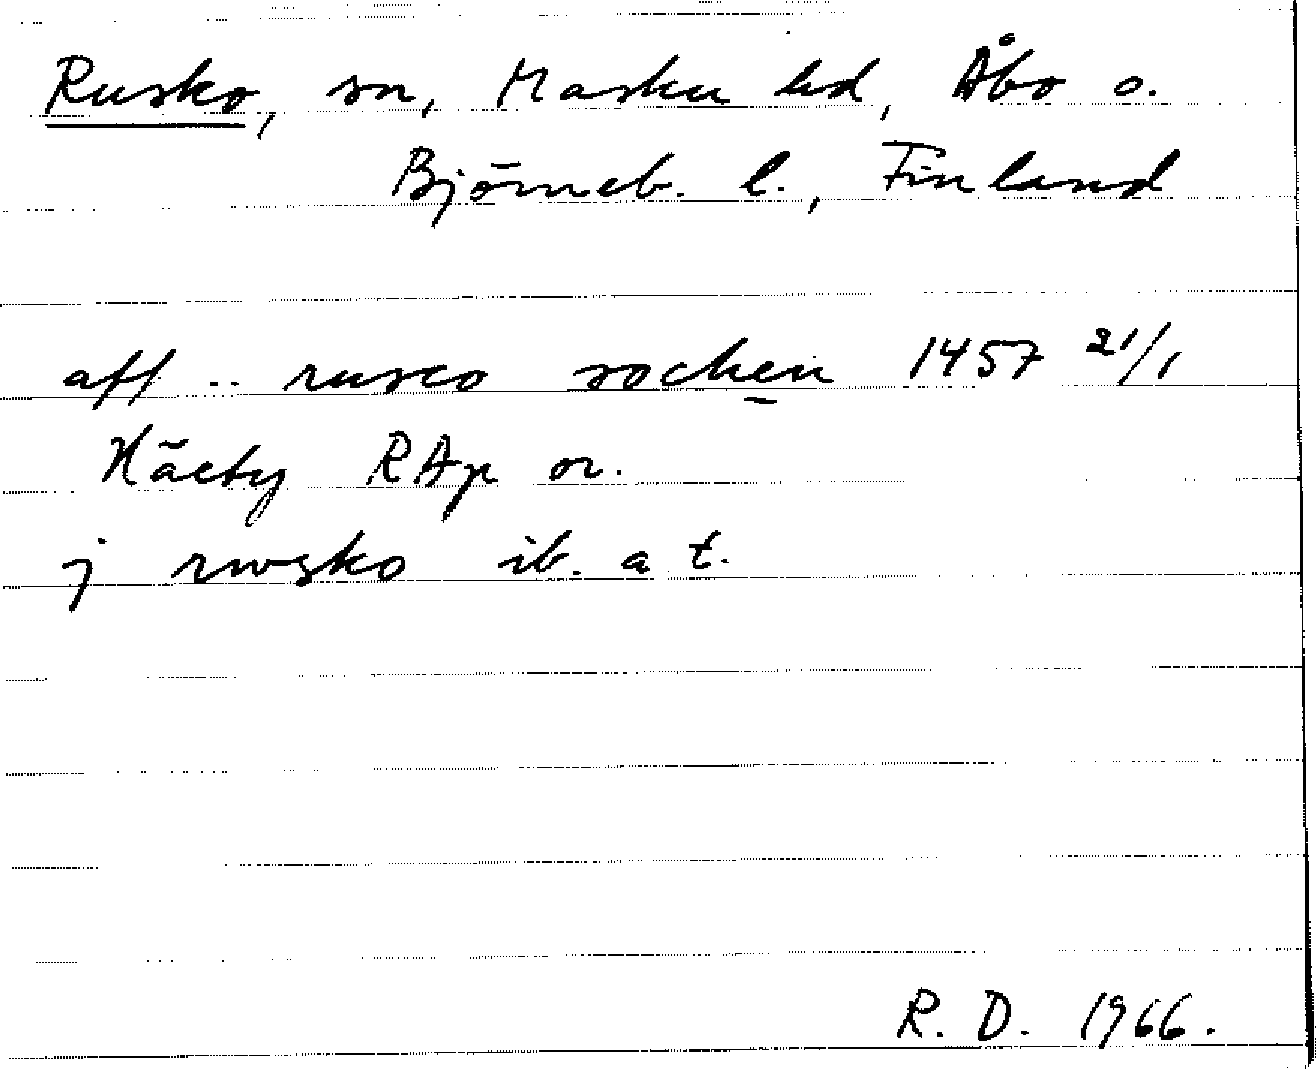 Rusko, sn, Masku hd, Åbo o.
Björneb. l., Finland
aff .. rusco sochen 1457 21/1
Häety RAp or.
j rwsko ib. a t.
R. D. 1966.